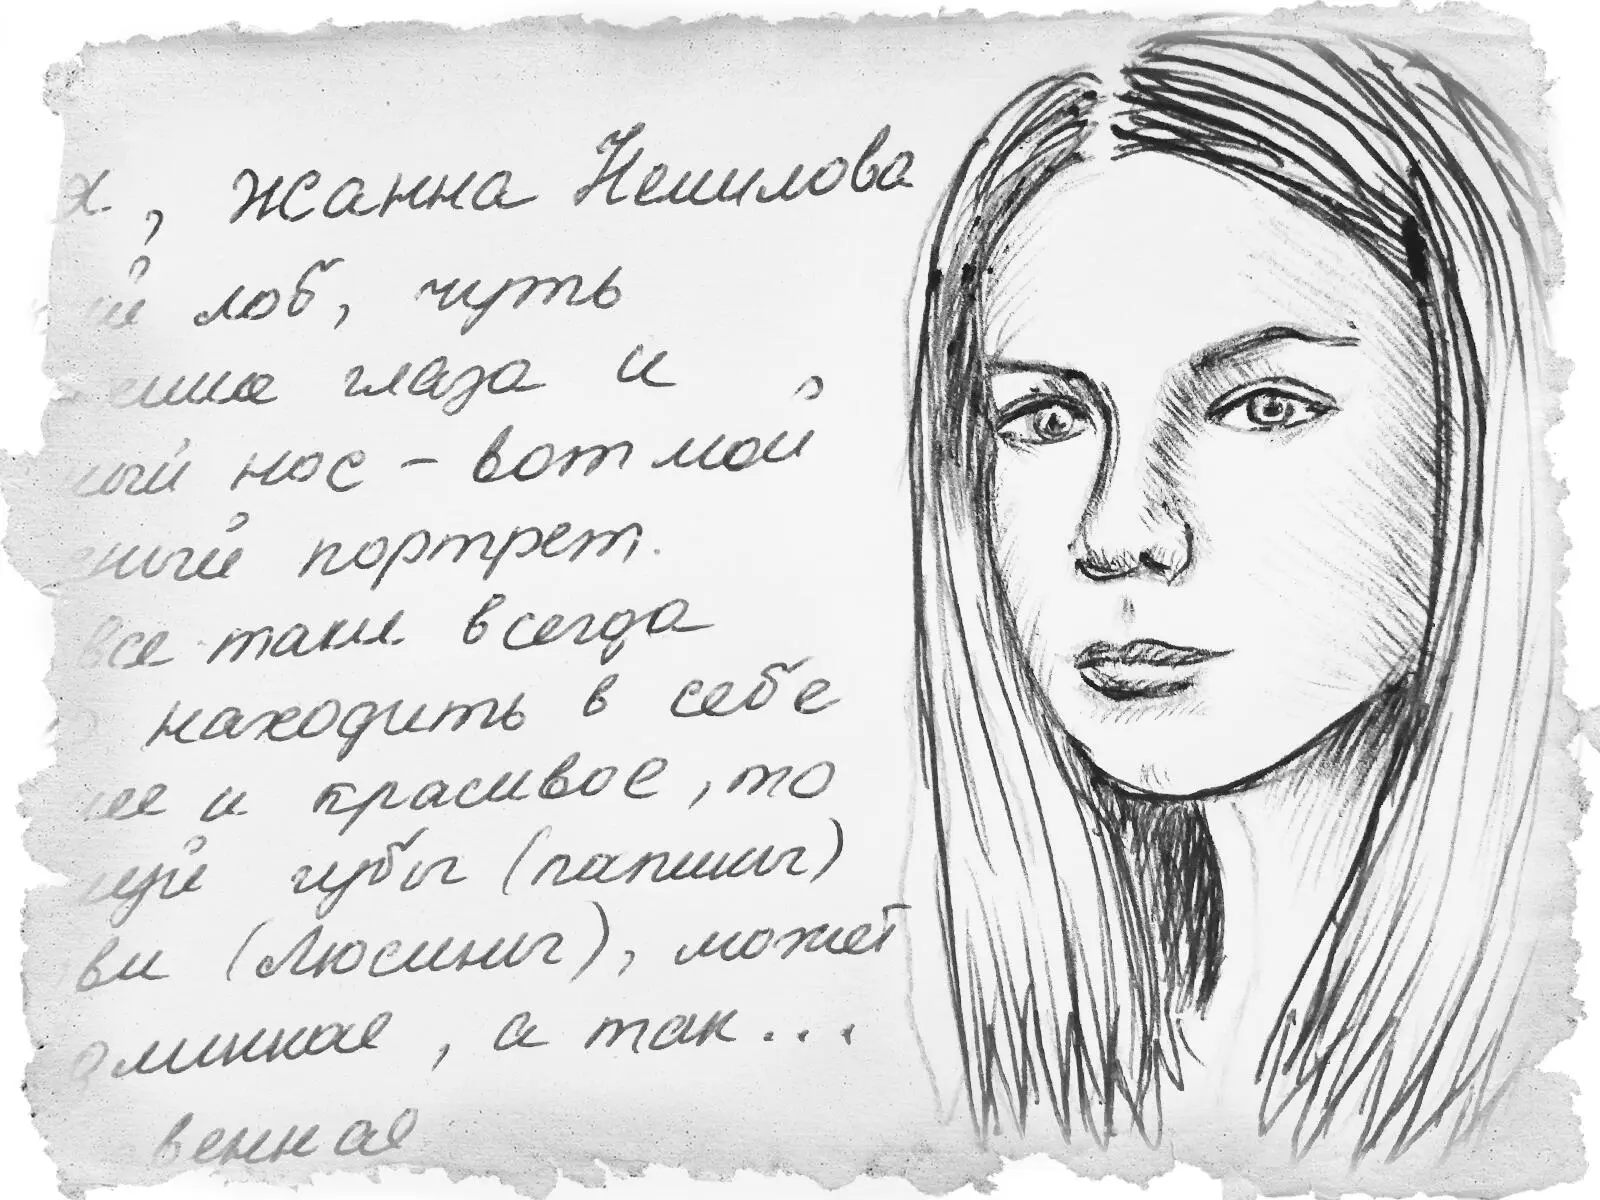 х, Жанна Немилова
ый лоб, чуть
ешие глаза и
ный нос - вот мой
енный портрет.
все таки всегда
находить в себе
ее и красивое, то
губы (папины)
ви (Люсины), может
оминкае, а так...
венная